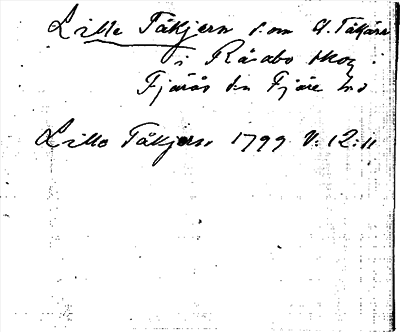 Lille Tåkjern s. om St. Tåkärn
i Råsabo skog i
Fjärås sn Fjäre hd
Lille Tåkjern 1799 V: 12: 11